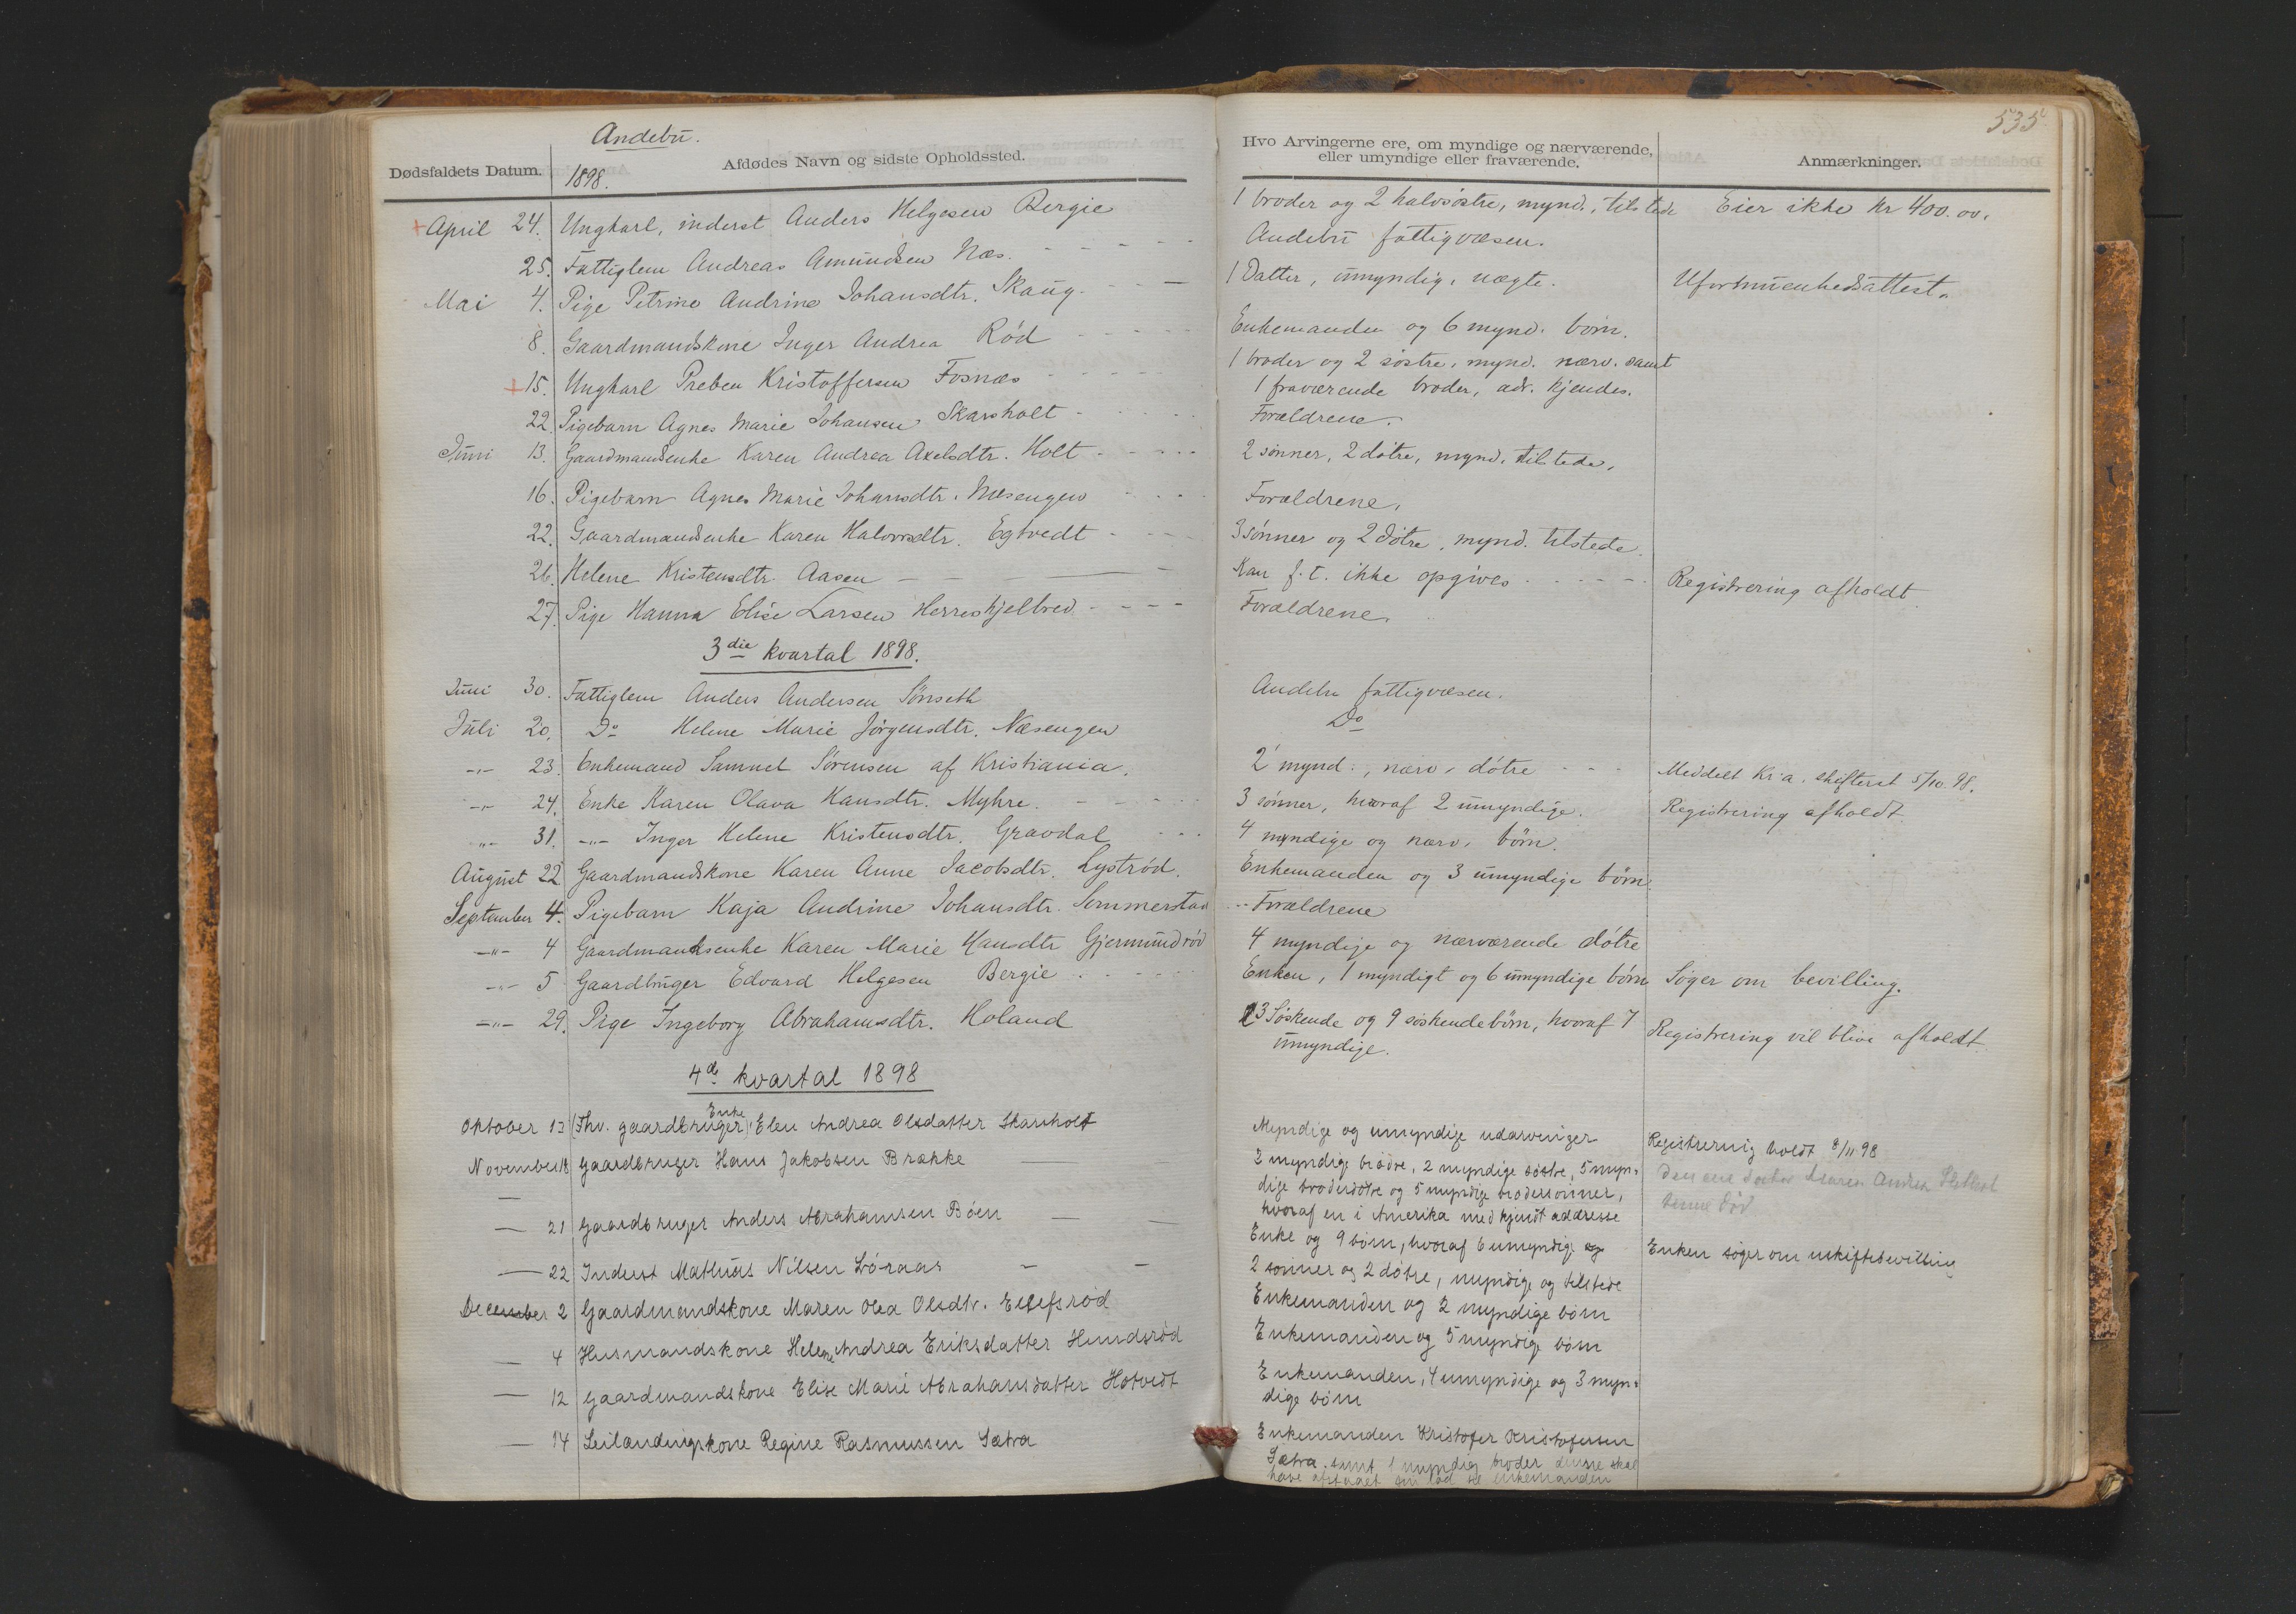 Andebu.
Dødsfaldets Datum.
1898.
Afdødes Navn og sidste Opholdssted.
April 24. Ungkarl, inderst Anders Helgesen Bergie
25. Fattiglem Andreas Amundsen Næs.
Mai 4. Pige Petrine Andrine Johansdtr. Skaug.
8. Gaardmandskone Inger Andrea Rød
15. Ungkarl Preben Kristoffersen Fosnæs
22. Pigebarn Agnes Marie Johansen Skarsholt
Juni 13. Gaardmandsenke Karen Andrea Axelsdtr. Holt
16. Pigebarn Agnes Marie Johansdtr. Næsengen
22. Gaardmandsenke Karen Halvorsdtr. Egtvedt
26. Helene Kristensdtr. Aasen
27. Pige Hanna Elise Larsen Herreskjelbred
3die kvartal 1898.
Juni 30. Fattiglem Anders Andersen Sønseth
Juli 20. Do Helene Marie Jørgensdtr. Næsengen
-"- 23. Enkemand Samuel Sørensen af Kristiania.
-"- 24. Enke Karen Olava Hansdtr. Myhre.
-"- 31. -"- Inger Helene Kristensdtr. Gravdal
August 22 Gaardmandskone Karen Anne Jacobsdtr. Lystrød.
September 4. Pigebarn Kaja Andrine Johansdtr. Sommerstad
-"- 4 Gaardmandsenke Karen Marie Hansdtr Gjermundrød
-"- 5 Gaardbruger Edvard Helgesen Bergie
-"- 29. Pige Ingeborg Abrahamsdtr. Holand
4de kvartal 1898
Enke
Oktober 13 (Fhv. gaardbruger) Elen Andrea Olsdatter Skarsholt
November 18 Gaardbruger Hans Jakobsen Brække
— 21 Gaardbruger Anders Abrahamsen Bøen
— 22 Inderst Mathias Nilsen Løraas
December 2 Gaardmandskone Maren Olea Olsdtr. Elefsrød
— 4 Husmandskone Helene Andrea Eriksdatter Hundsrød
— 12 Gaardmandskone Elise Marie Abrahamsdatter Hotvedt
— 14 Leilændingskone Regine Rasmussen Sætra
535
Hvo Arvingerne ere, om myndige og nærværende,
eller umyndige eller fraværende.
Anmærkninger.
1 broder og 2 halvsøstre, mynd., tilstede Eier ikke Kr 400.00.
Andebu fattigvæsen.
1 Datter, umyndig, uægte. Uformuenhedsattest.
Enkemanden og 6 mynd. børn.
1 broder og 2 søstre, mynd. nærv. samt
1 fraværende broder, adr. kjendes.
Forældrene.
2 sønner, 2 døtre, mynd. tilstede.
Forældrene.
3 sønner og 2 døtre, mynd. tilstede.
Kan f. t. ikke opgives Registrering afholdt.
Forældrene.
Andebu fattigvæsen.
Do
2 mynd., nærv. døtre Meddelt Kr.a. skifteret 5/10. 98.
3 sønner, hvoraf 2 umyndige. Registrering afholdt.
4 myndige og nærv. børn.
Enkemanden og 3 umyndige børn.
Forældrene
4 myndige og nærværende døtre
Enken, 1 myndigt og 6 umyndige børn Søger om bevilling.
3 Søskende og 9 søskendebørn, hvoraf 7 Registrering vil blive afholdt.
umyndige.
Myndige og umyndige udarvinger Registrering holdt 8/11 98
3 myndige brødre, 2 myndige søstre, 5 myn-
dige broderdøtre og 5 myndige brodersønner,
hvoraf en i Amerika med kjendt addresse
Den ene Maren Andrea
denne død
Enke og 9 børn, hvoraf 6 umyndige Enken søger om uskiftebevilling
2 sønner og 2 døtre, myndige og tilstede
Enkemanden og 2 myndige børn
Enkemanden og 5 myndige børn
Enkemanden, 4 umyndige og 3 myn-
dige børn
Enkemanden Kristofer Kristofersen
Sætra samt 1 myndig broder denne skal
have afstaaet sin lod til enkemanden